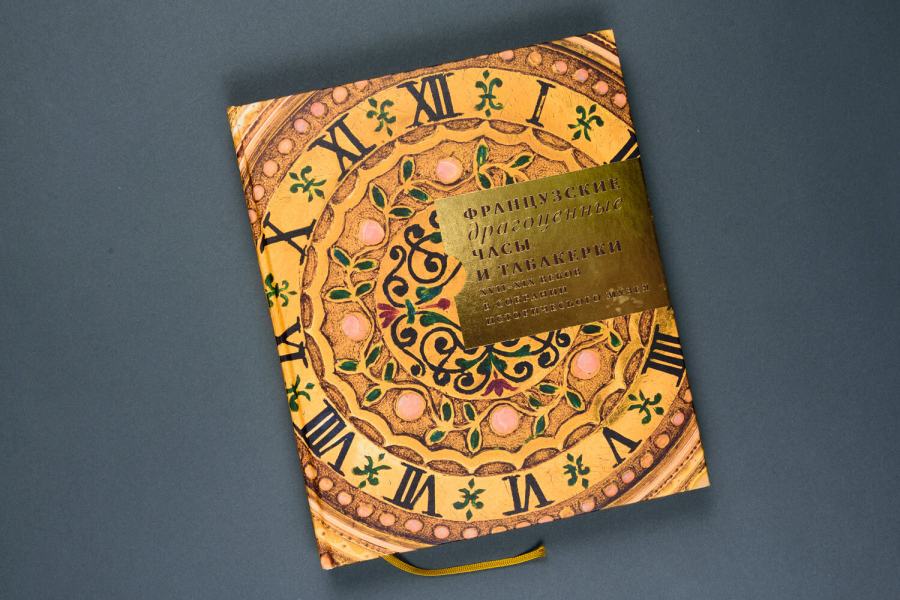 XII
I
XI
X
IIII
V
VI
VII
VIII
ФРАНЦУЗСКИЕ
драгоценные
ЧАСЫ
И ТАБАКЕРКИ
XVII–XIX ВЕКОВ
В СОБРАНИИ
ИСТОРИЧЕСКОГО МУЗЕЯ